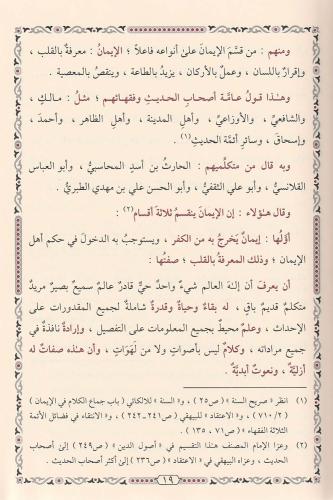 ومنهم : من قسَّمَ الإيمانَ علىٰ أنواعه فاعلاً ؛ الإيمانُ : معرفةٌ بالقلب ،
وإقرارٌ باللسان ، وعملٌ بالأركان ، يزيدُ بالطاعة ، وينقصُ بالمعصية .
وهـٰـذا قـولُ عـامَّـة أصحـابِ الحـديـث وفقهـائهـم ؛ مثـلُ : مـالـكٍ ،
والشافعيِّ ، والأوزاعيِّ ، وأهلِ المدينة ، وأهلِ الظاهر ، وأحمدَ ،
وإسحاقَ ، وسائرِ أئمَّة الحديث(١) .
وبه قال من متكلِّميهم : الحارثُ بن أسدٍ المحاسبيُّ ، وأبو العباس
القلانسيُّ ، وأبو علي الثقفيُّ ، وأبو الحسن علي بن مهدي الطبريُّ .
وقال هـٰؤلاء : إن الإيمانَ ينقسمُ ثلاثةَ أقسام(٢) :
أوَّلُها : إيمانٌ يَخرجُ به من الكفر ، ويستوجبُ به الدخولَ في حكم أهل
الإيمان ؛ وذلك المعرفةُ بالقلب ؛ صفتُها :
أن يعرفَ أن إلـٰهَ العالم شيءٌ واحدٌ حيٌّ قادرٌ عالمٌ سميعٌ بصيرٌ مريدٌ
متكلمٌ قديمٌ باقٍ ، له بقاءٌ وحياةٌ وقدرةٌ شاملةٌ لجميع المقدورات على
الإحداث ، وعلمٌ محيطٌ بجميع المعلومات على التفصيل ، وإرادةٌ نافذةٌ في
جميع مراداته ، وكلامٌ ليس بأصواتٍ ولا من لَهَوَاتٍ ، وأن هـٰذه صفاتٌ له
أزليَّةٌ ، ونعوتٌ أبديَّةٌ .
(١) انظر « صريح السنة » ( ص٢٥ ) ، و« السنة » لللالكائي ( باب جماع الكلام في الإيمان )
( ٢/ ٧١٠ ) ، و« الاعتقاد » للبيهقي ( ص٢٤١-٢٤٢ ) ، و« الانتقاء في فضائل الأئمة
الثلاثة الفقهاء » ( ص٧١ ، ١٣٥ ) .
(٢) وعزا الإمام المصنف هذا التقسيم في « أصول الدين » ( ص٢٤٩ ) إلىٰ أصحاب
الحديث ، وعزاه البيهقي في « الاعتقاد » ( ص٢٣٦ ) إلىٰ أكثر أصحاب الحديث .
١٩